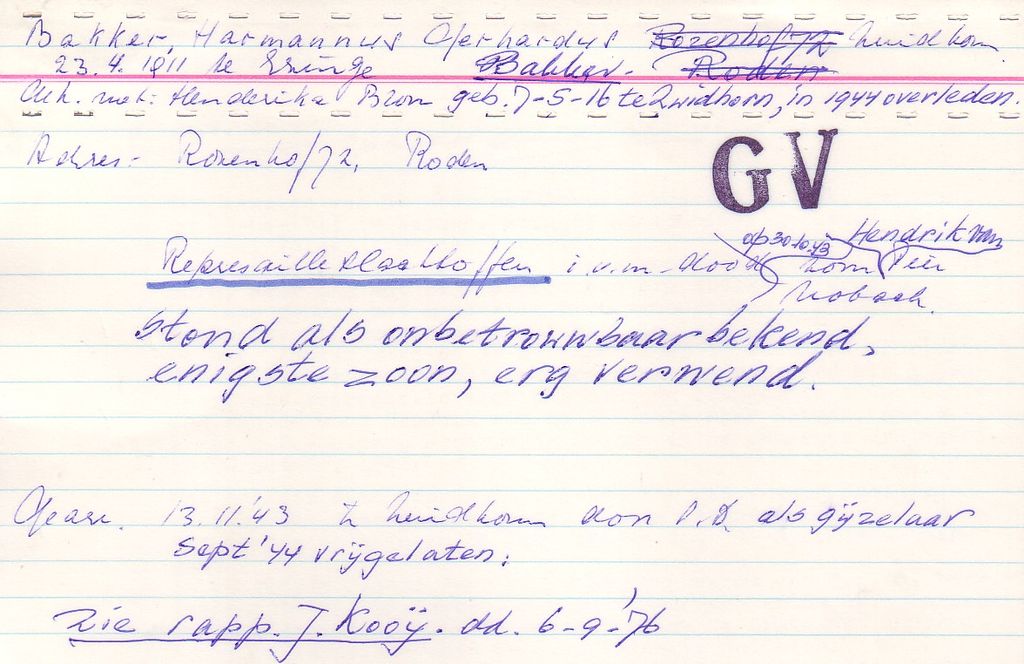 Bakker, Harmannus Gerhardus Rozenhof 72 Zuidhorn
23.4.1911 te Ezinge Bakker- Roden
Geh. met: Henderika Bron geb. 7-5-16 te Zuidhorn, in 1944 overleden.
Adres- Rozenhof 72, Roden
GV
op 30-10-43 Hendrik van
Represailleslachtoffer i.v.m. dood kom Peir
stond als onbetrouwbaar bekend,
enigste zoon, erg verwend.
Gearr. 13.11.'43 te Zuidhorn door S.D. als gijzelaar
Sept '44 vrijgelaten.
Zie rapp. J. Kooij. dd. 6-9-'76